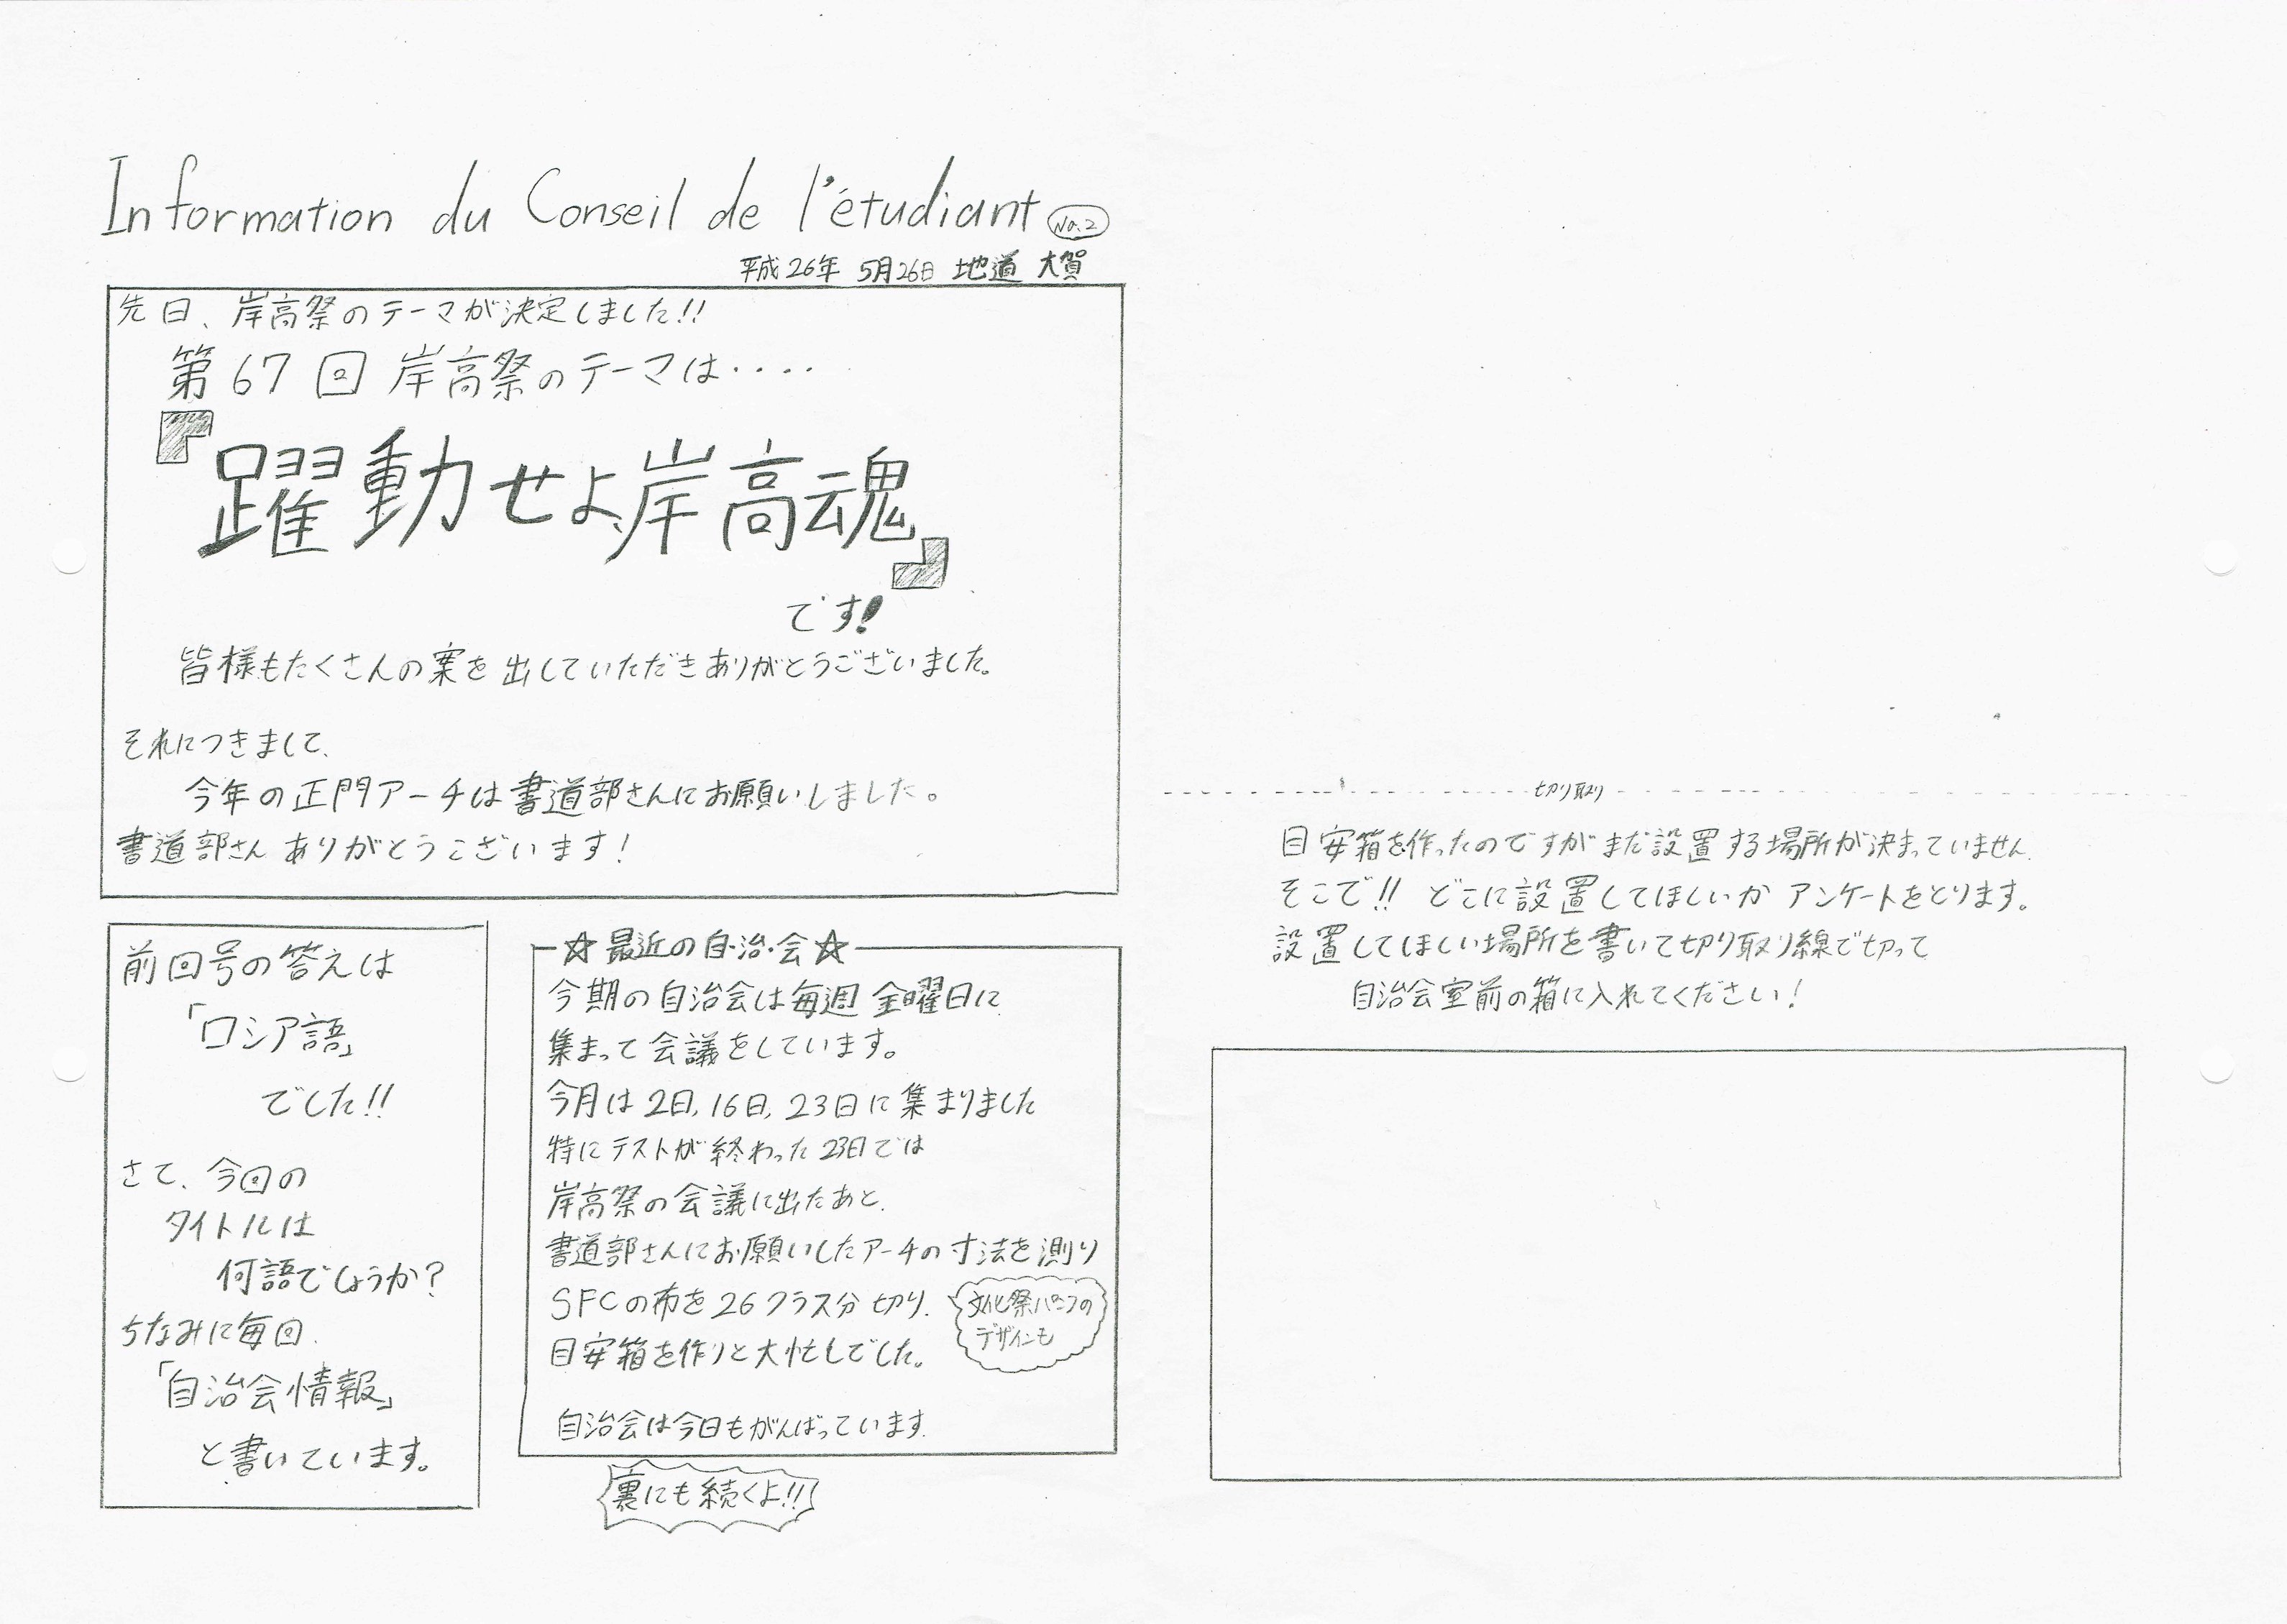 Information du Conseil de l'étudiant No.2
平成26年 5月26日 地道 大賀
先日、岸高祭のテーマが決定しました!!
第67回 岸高祭のテーマは‥‥
『躍動せよ、岸高魂』
です!
皆様もたくさんの案を出していただきありがとうございました。
それにつきまして、
今年の正門アーチは書道部さんにお願いしました。
書道部さん ありがとうございます!
前回号の答えは
「ロシア語」
でした!!
さて、今回の
タイトルは
何語でしょうか?
ちなみに毎回、
「自治会情報」
と書いています。
☆最近の自・治・会☆
今期の自治会は毎週 金曜日に
集まって会議をしています。
今月は 2日, 16日, 23日に集まりました
特にテストが終わった23日では
岸高祭の会議に出たあと、
書道部さんにお願いしたアーチの寸法を測り
SFCの布を26クラス分 切り、
文化祭パンフの
デザインも
目安箱を作りと大忙しでした。
自治会は今日もがんばっています。
裏にも続くよ!!
切り取り
目安箱を作ったのですがまだ設置する場所が決まっていません。
そこで!! どこに設置してほしいか アンケートをとります。
設置してほしい場所を書いて切り取り線で切って
自治会室前の箱に入れてください!